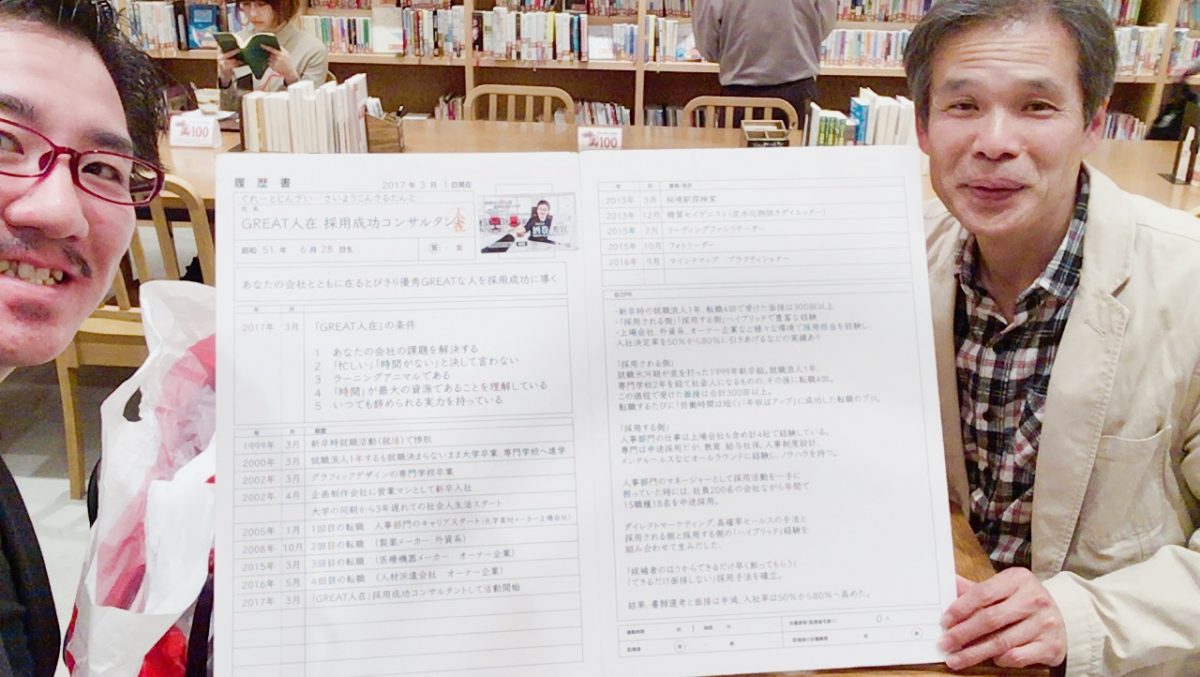 履歴書
2017年 3月 1日現在
ぐれーとじんざい さいようこんさるたんと
氏名
GREAT人在 採用成功コンサルタント
昭和 51年 6月 28日生
男・女
あなたの会社とともに在るとびきり優秀GREATな人を採用成功に導く
年 月
2017年 3月 「GREAT人在」の条件
1 あなたの会社の課題を解決する
2 「忙しい」「時間がない」と決して言わない
3 ラーニングアニマルである
4 「時間」が最大の資源であることを理解している
5 いつでも辞められる実力を持っている
年 月 職歴
1999年 3月 新卒時就職活動(就活)で惨敗
2000年 3月 就職浪人1年するも就職決まらないまま大学卒業、専門学校へ進学
2002年 3月 グラフィックデザインの専門学校卒業
2002年 4月 企画制作会社に営業マンとして新卒入社
大学の同期から3年遅れての社会人生活スタート
2005年 1月 1回目の転職 人事部門のキャリアスタート(化学素材メーカー上場会社)
2008年 10月 2回目の転職 (製薬メーカー、外資系)
2015年 3月 3回目の転職 (医療機器メーカー オーナー企業)
2016年 5月 4回目の転職 (人材派遣会社 オーナー企業)
2017年 3月 「GREAT人在」採用成功コンサルタントとして活動開始
年 月 資格・免許
2013年 3月 秘境駅探検家
2013年 12月 糖質セイゲニスト(炭水化物抜きダイエッター)
2015年 2月 リーディングファシリテーター
2015年 10月 フォトリーダー
2016年 9月 マインドマップ プラクティショナー
自己PR
・新卒時の就職浪人1年、転職4回で受けた面接は300回以上
・「採用される側」「採用する側」ハイブリッドで豊富な経験
・上場会社、外資系、オーナー企業など様々な環境で採用担当を経験し、
入社決定率を50%から80%に引きあげるなどの実績あり
「採用される側」
就職氷河期が底を打った1999年新卒組。就職浪人1年、
専門学校2年を経て社会人になるものの、その後に転職4回。
この過程で受けた面接は合計300回以上。
転職するたびに「労働時間は短く」「年収はアップ」に成功した転職のプロ。
「採用する側」
人事部門の仕事は上場会社も含め計4社で経験している。
専門は中途採用だが、教育、給与社保、人事制度設計、
メンタルヘルスなどオールラウンドに経験し、ノウハウを持つ。
人事部門のマネージャーとして採用活動を一手に
担っていた時には、社員200名の会社ながら年間で
15職種18名を中途採用。
ダイレクトマーケティング、高確率セールスの手法と
採用される側と採用する側の「ハイブリッド」経験を
組み合わせて生みだした、
「候補者のほうからできるだけ早く断ってもらう」
「できるだけ面接しない」採用手法を確立。
結果、書類選考と面接は半減、入社率は50%から80%へ高めた。
通勤時間 約 1 時間 分
扶養家族(配偶者を除く) 0人
配偶者 有・無
配偶者の扶養義務 有・無
100
100